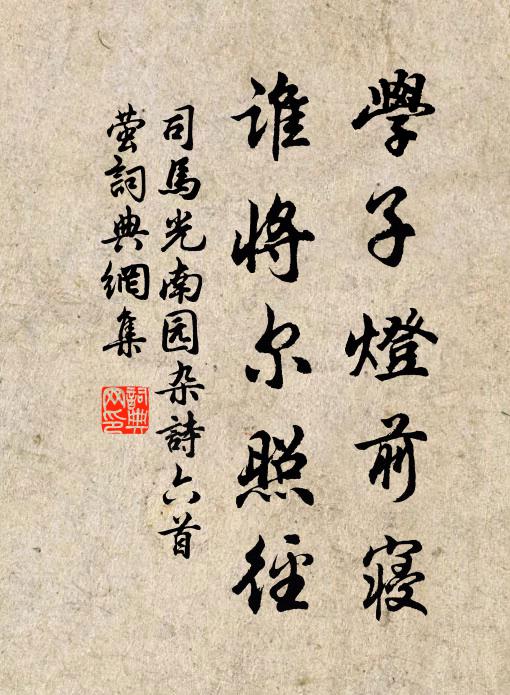 學子燈前寢
誰將尔照徑
司馬光南园杂詩六首
萤詞典網集
詞典网印